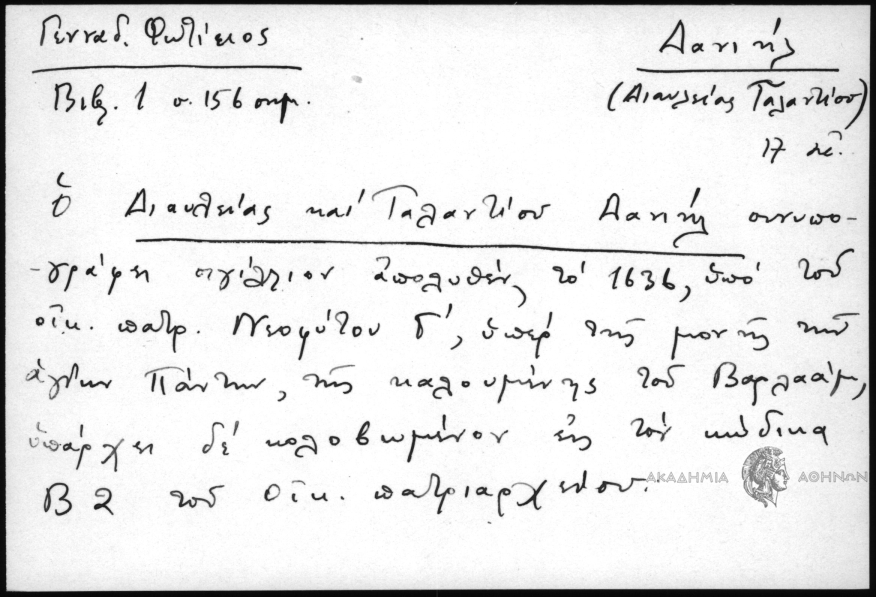 Γενναδ. Φωτίειος
Δανιήλ
Βιβλ. 1 σ. 156 σημ.
(Διαυλείας Ταλαντίου)
17 αἰ.
Ὁ Διαυλείας καί Ταλαντίου Δανιήλ συνυπο-
-γράφει σιγίλλιον ἀπολυθέν, τό 1636, ὑπό τοῦ
οἰκ. πατρ. Νεοφύτου Γ΄, ὑπέρ τῆς μονῆς τῶν
ἁγίων Πάντων, τῆς καλουμένης τοῦ Βαρλαάμ,
ὑπάρχει δέ κολοβωμένον εἰς τόν κώδικα
Β 2 τοῦ Οἰκ. πατριαρχείου.
ΑΚΑΔΗΜΙΑ ΑΘΗΝΩΝ